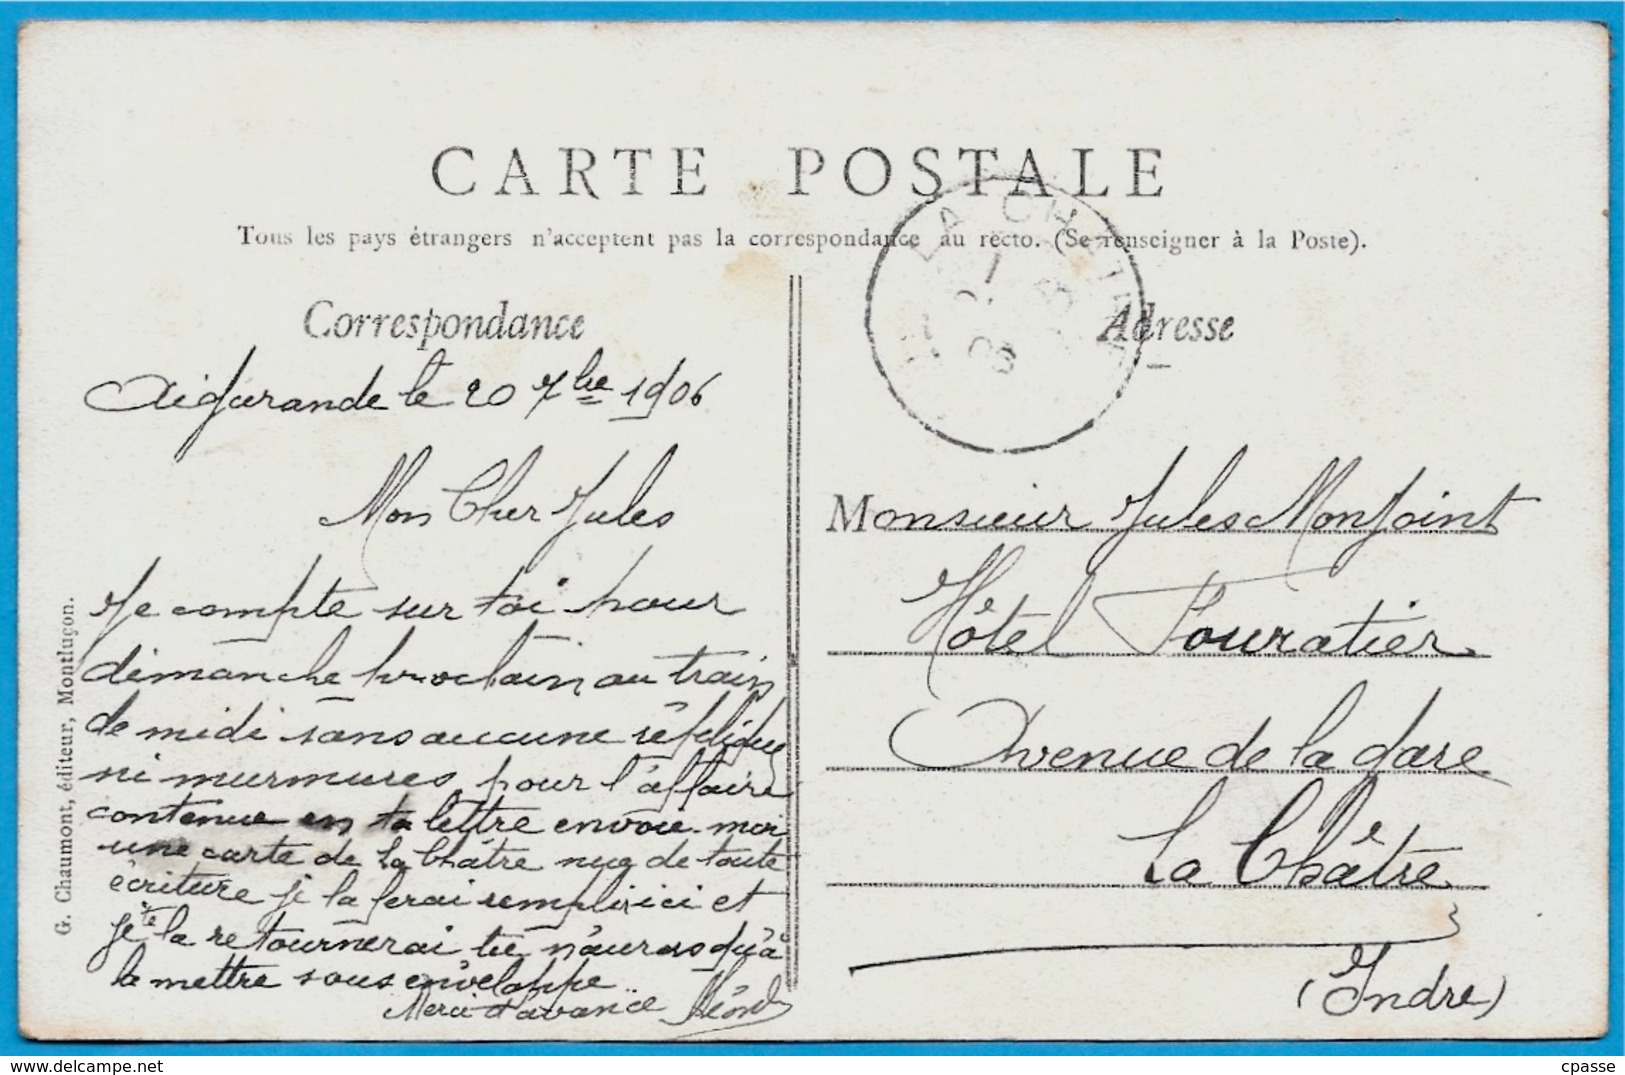 CARTE POSTALE
Tous les pays étrangers n'acceptent pas la correspondance au recto. (Se renseigner à la Poste).
Correspondance
Aigurande le 20 7bre 1906
Mon Cher Jules
Je compte sur toi pour
dimanche prochain au train
de midi sans aucune réplique
ni murmures pour l'affaire
contenue en ta lettre envoie-moi
une carte de La Châtre nue de toute
écriture je la ferai remplir ici et
je te la retournerai tu n'auras qu'à
la mettre sous enveloppe
Merci d'avance Léon
G. Chaumont, éditeur, Montluçon.
LA CHATRE
Adresse
Monsieur Jules Monjoint
Hôtel Fouratier
Avenue de la gare
La Châtre
(Indre)
© delcampe.net
cpasse